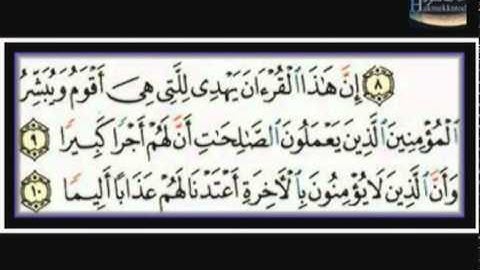 ٨ إِنَّ هَٰذَا ٱلْقُرْءَانَ يَهْدِى لِلَّتِى هِىَ أَقْوَمُ وَيُبَشِّرُ
ٱلْمُؤْمِنِينَ ٱلَّذِينَ يَعْمَلُونَ ٱلصَّٰلِحَٰتِ أَنَّ لَهُمْ أَجْرًا كَبِيرًا ٩
وَأَنَّ ٱلَّذِينَ لَا يُؤْمِنُونَ بِٱلْءَاخِرَةِ أَعْتَدْنَا لَهُمْ عَذَابًا أَلِيمًا ١٠